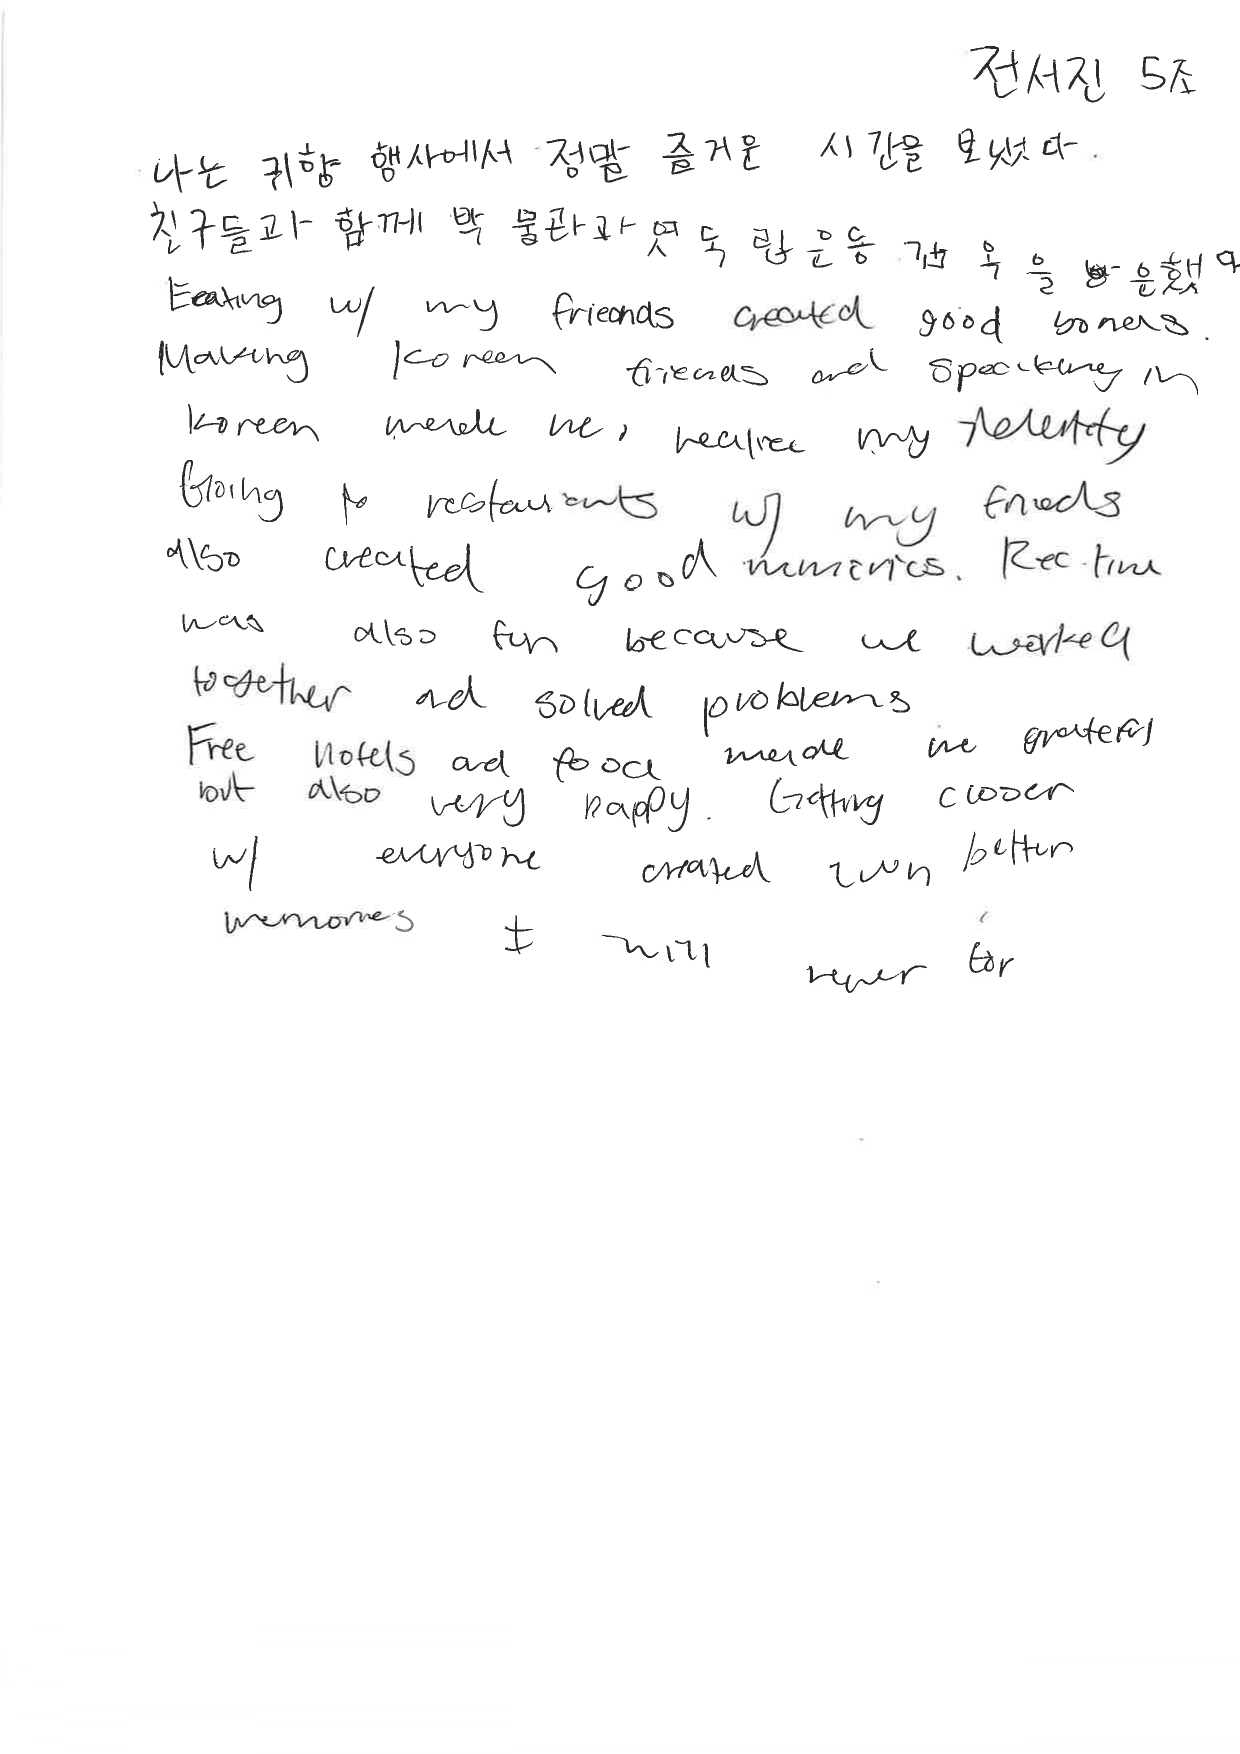 전서진 5조
나는 귀향 행사에서 정말 즐거운 시간을 보냈다.
친구들과 함께 박물관과 옛 독립운동 감옥을 방문했다
Eating w/ my friends created good boners.
Making Koreen friends and speaking in
Koreen made me, realize my identity
Going to restaurants w/ my frieds
also created good memories. Rec time
was also fun because we worked
together ad solved problems
Free hotels ad food made me grateful
but also very happy. Getting closer
w/ everyone created even better
memories I will never for